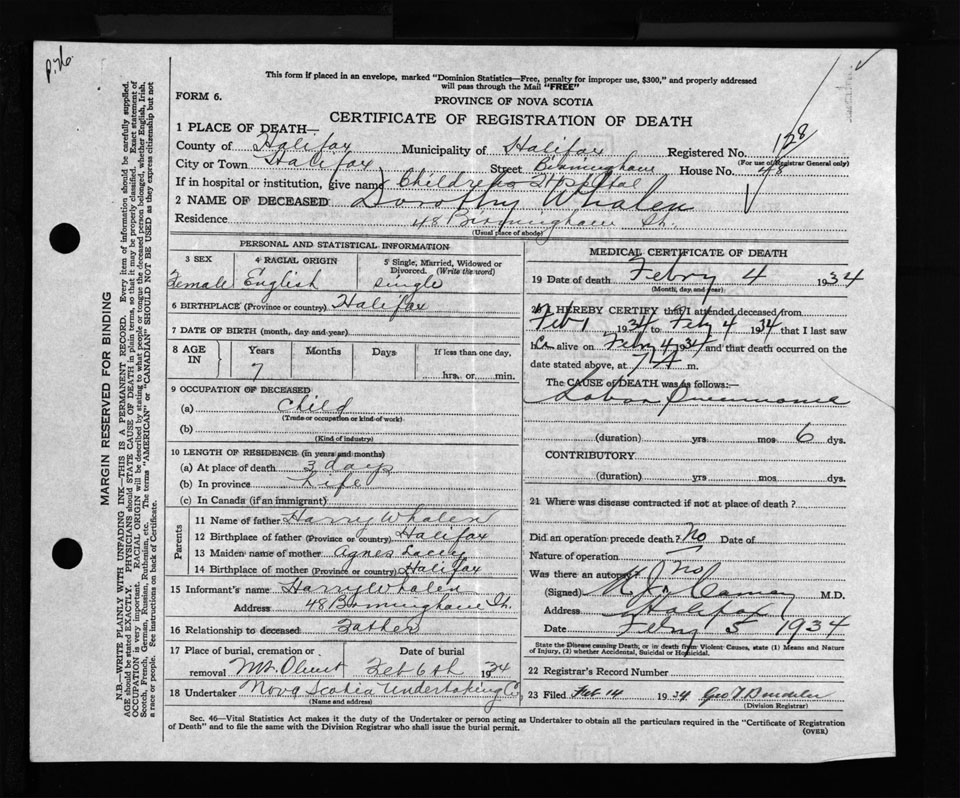 P.76
This form if placed in an envelope, marked "Dominion Statistics—Free, penalty for improper use, $300," and properly addressed
will pass through the Mail "FREE"
FORM 6.
PROVINCE OF NOVA SCOTIA
CERTIFICATE OF REGISTRATION OF DEATH
1 PLACE OF DEATH—
County of Halifax Municipality of Halifax Registered No. 128
(For use of Registrar General only)
City or Town Halifax Street Birmingham House No. 48
If in hospital or institution, give name Children's Hospital
2 NAME OF DECEASED Dorothy Whalen
Residence 48 Birmingham St.
(Usual place of abode)
PERSONAL AND STATISTICAL INFORMATION
3 SEX 4 RACIAL ORIGIN 5 Single, Married, Widowed or Divorced. (Write the word)
Female English single
6 BIRTHPLACE (Province or country) Halifax
7 DATE OF BIRTH (month, day and year)
8 AGE IN Years Months Days If less than one day,
7 hrs. or min.
9 OCCUPATION OF DECEASED
(a) Child
(Trade or occupation or kind of work)
(b)
(Kind of industry)
10 LENGTH OF RESIDENCE (in years and months)
(a) At place of death 3 days
(b) In province Life
(c) In Canada (if an immigrant)
Parents
11 Name of father Harry Whalen
12 Birthplace of father (Province or country) Halifax
13 Maiden name of mother Agnes Lacey
14 Birthplace of mother (Province or country) Halifax
15 Informant's name Harry Whalen
Address 48 Birmingham St.
16 Relationship to deceased Father
17 Place of burial, cremation or Date of burial
removal Mt. Olivet Feb 6th 1934
18 Undertaker Nova Scotia Undertaking Co
(Name and address)
MEDICAL CERTIFICATE OF DEATH
19 Date of death Febry 4 1934
(Month, day and year)
20 I HEREBY CERTIFY that I attended deceased from
Feb 1 1934 to Feby 4 1934 that I last saw
h alive on Feby 4 1934 and that death occurred on the
date stated above, at 7 A m.
The CAUSE of DEATH was as follows:—
Lobar Pneumonia
(duration) yrs mos 6 dys.
CONTRIBUTORY
(duration) yrs mos dys.
21 Where was disease contracted if not at place of death?
Did an operation precede death? No Date of
Nature of operation
Was there an autopsy? No
(Signed) M.D.
Address Halifax
Date Feby 5 1934
State the Disease causing Death, or in death from Violent Causes, state (1) Means and Nature
of Injury, (2) whether Accidental, Suicidal or Homicidal.
22 Registrar's Record Number
23 Filed Feb 14 1934 Geo
(Division Registrar)
Sec. 46—Vital Statistics Act makes it the duty of the Undertaker or person acting as Undertaker to obtain all the particulars required in the "Certificate of Registration
of Death" and to file the same with the Division Registrar who shall issue the burial permit.
(OVER)
MARGIN RESERVED FOR BINDING
N.B.—WRITE PLAINLY WITH UNFADING INK—THIS IS A PERMANENT RECORD. Every item of information should be carefully supplied.
AGE should be stated EXACTLY. PHYSICIANS should STATE CAUSE OF DEATH in plain terms, so that it may be properly classified. Exact statement of
OCCUPATION is very important. RACIAL ORIGIN will be described by stating to what people or tongue the deceased person belonged, whether English, Irish,
Scotch, French, German, Russian, Ruthenian, etc. The terms "AMERICAN" or "CANADIAN" SHOULD NOT BE USED as they express citizenship but not
a race or people. See instructions on back of Certificate.